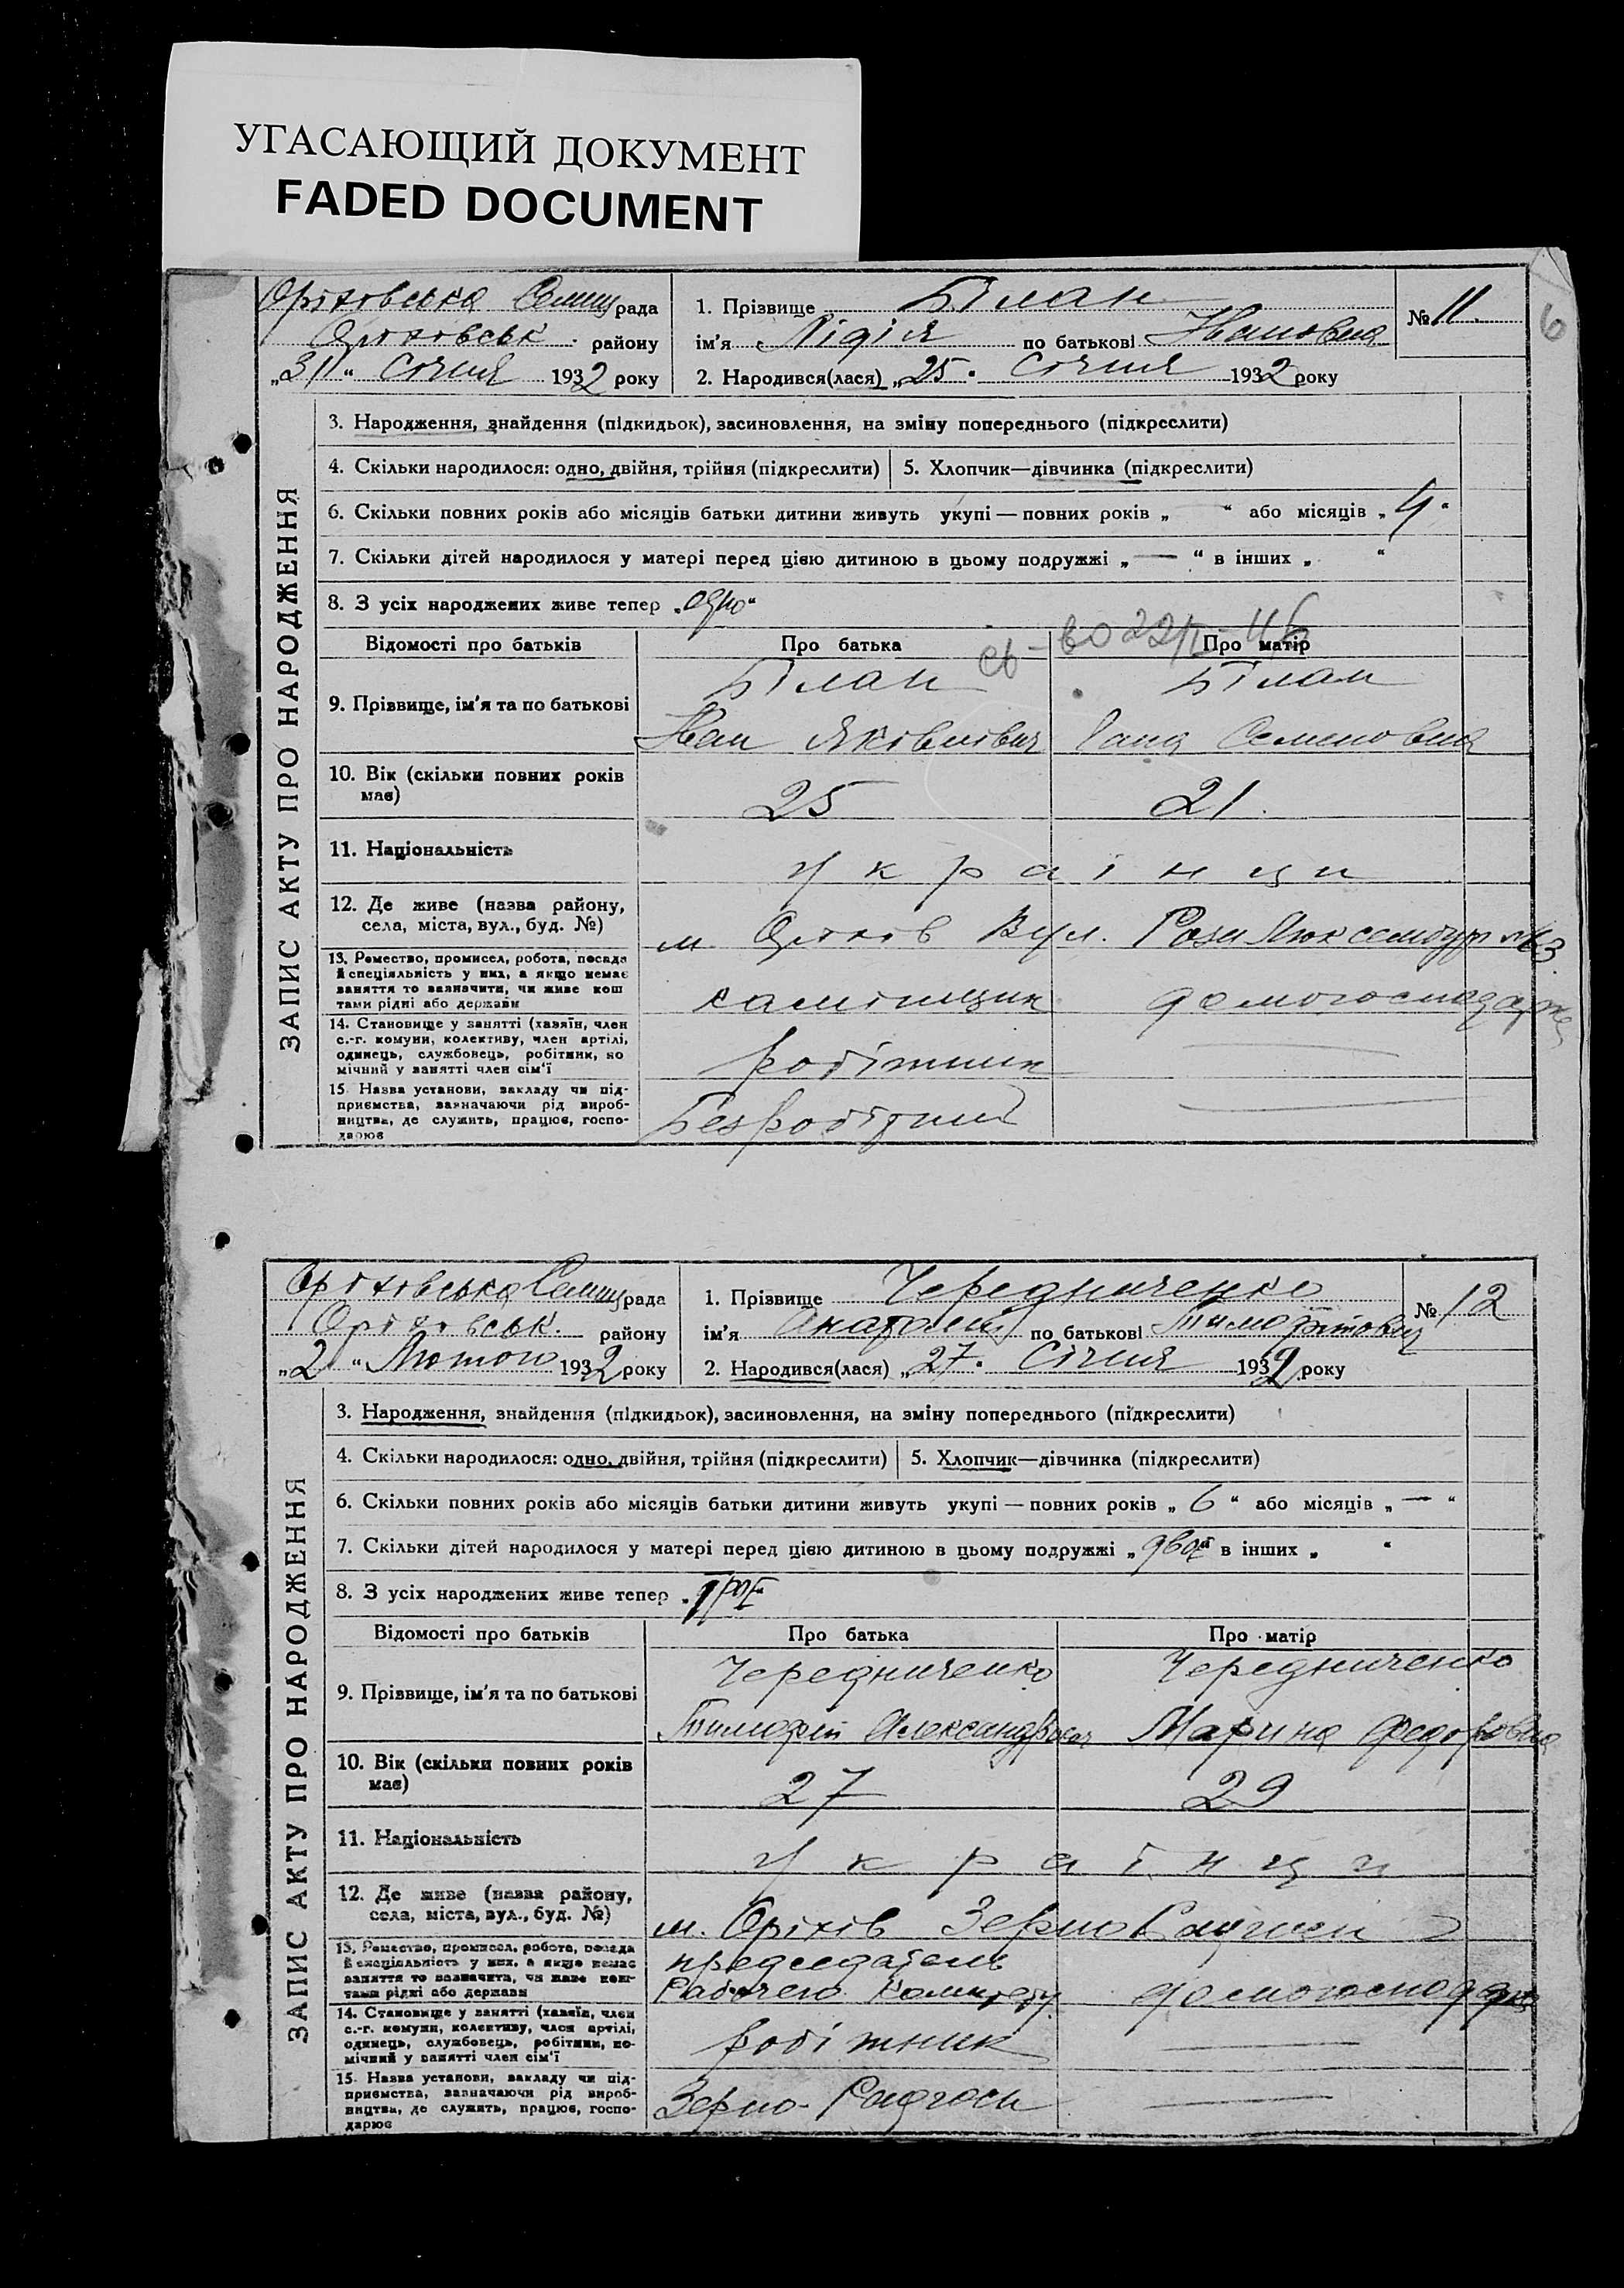 УГАСАЮЩИЙ ДОКУМЕНТ
FADED DOCUMENT
6
Оріховська Селищ рада
Оріховськ. району
„31“ Січня 1932 року
1. Прізвище Білан
ім’я Лідія по батькові Ивановна
2. Народився(лася) „25“ Січня 1932 року
№ 11.
ЗАПИС АКТУ ПРО НАРОДЖЕННЯ
3. Народження, знайдення (підкидьок), засиновлення, на зміну попереднього (підкреслити)
4. Скільки народилося: одно, двійня, трійня (підкреслити)
5. Хлопчик—дівчинка (підкреслити)
6. Скільки повних років або місяців батьки дитини живуть укупі — повних років „ “ або місяців „4“
7. Скільки дітей народилося у матері перед цією дитиною в цьому подружжі „—“ в інших „ “
8. З усіх народжених живе тепер „одно“
Відомості про батьків Про батька Про матір
св-во 22/II-46
9. Прізвище, ім’я та по батькові
Білан Білан
Иван Яківлівич Ганя Семеновна
10. Вік (скільки повних років має)
25 21.
11. Національність
українци
12. Де живе (назва району, села, міста, вул., буд. №)
м. Оріхів Вул. Рози Люксембург №63.
13. Ремество, промисел, робота, посада
й спеціяльність у них, а якщо немає
заняття то зазначити, чи живе кош
тами рідні або держави
каменщик домогосподарка
14. Становище у занятті (хазяїн, член
с.-г. комуни, колективу, член артілі,
одинець, службовець, робітник, по
мічний у занятті член сім’ї
робітник —
15. Назва установи, закладу чи під-
приємства, зазначаючи рід вироб-
ництва, де служить, працює, госпо-
дарює
Безробітний —
Оріховська Селищ рада
Оріховськ. району
„2“ Лютого 1932 року
1. Прізвище Чередниченко
ім’я Анатолій по батькові Тимофійович
2. Народився(лася) „27“ Січня 1932 року
№ 12
ЗАПИС АКТУ ПРО НАРОДЖЕННЯ
3. Народження, знайдення (підкидьок), засиновлення, на зміну попереднього (підкреслити)
4. Скільки народилося: одно, двійня, трійня (підкреслити)
5. Хлопчик—дівчинка (підкреслити)
6. Скільки повних років або місяців батьки дитини живуть укупі — повних років „6“ або місяців „—“
7. Скільки дітей народилося у матері перед цією дитиною в цьому подружжі „двоє“ в інших „ “
8. З усіх народжених живе тепер „троє“
Відомості про батьків Про батька Про матір
9. Прізвище, ім’я та по батькові
Чередниченко Чередниченко
Тимофій Александрович Марина Федоровна
10. Вік (скільки повних років має)
27 29
11. Національність
українци
12. Де живе (назва району, села, міста, вул., буд. №)
м. Оріхів Зерно
13. Ремество, промисел, робота, посада
й спеціяльність у них, а якщо немає
заняття то зазначити, чи живе кош-
тами рідні або держави
председатель
Рабочего Комитету домогосподарка
14. Становище у занятті (хазяїн, член
с.-г. комуни, колективу, член артілі,
одинець, службовець, робітник, по-
мічний у занятті член сім’ї
робітник —
15. Назва установи, закладу чи під-
приємства, зазначаючи рід вироб-
ництва, де служить, працює, госпо-
дарює
Зерно- Радгосп —